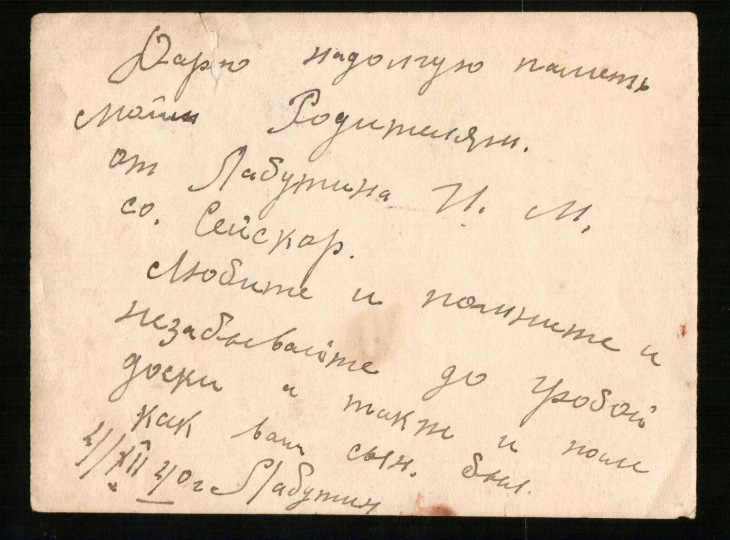 Дарю надолгую память
моим Родителям.
от Лабутина И. М.
со. Сейскар.
Любите и помните и
незабывайте до гробой
доски и также и
как ваш сын. был.
4/XII 40 г. Лабутин